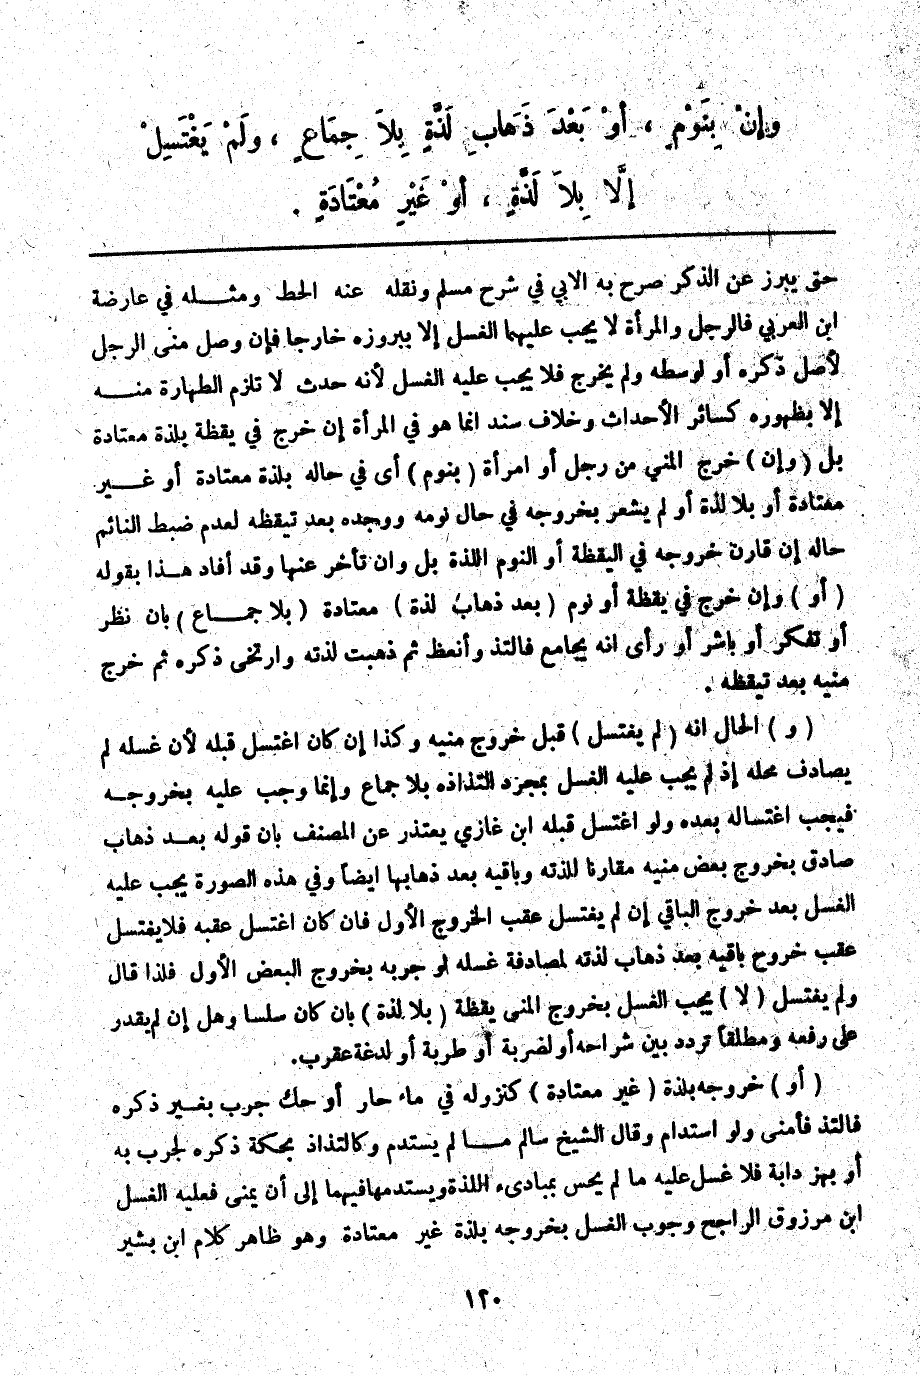 وإنْ بِنَوْمٍ ، أوْ بَعْدَ ذَهَابِ لَذَّةٍ بِلاَ جِمَاعٍ ، ولَمْ يَغْتَسِلْ
إلَّا بِلاَ لَذَّةٍ ، أوْ غَيْرِ مُعْتَادَةٍ .
حتى يبرز عن الذكر صرح به الابي في شرح مسلم ونقله عنه الحط ومثـــله في عارضة
ابن العربي فالرجل والمرأة لا يجب عليهما الغسل إلا ببروزه خارجا فإن وصل منى الرجل
لأصل ذكره أو لوسطه ولم يخرج فلا يجب عليه الغسل لأنه حدث لا تلزم الطهارة منـــه
إلا بظهوره كسائر الأحداث وخلاف سند انما هو في المرأة إن خرج في يقظة بلذة معتادة
بل ( وإن ) خرج المني من رجل أو امرأة ( بنوم ) أى في حاله بلذة معتادة أو غـــير
معتادة أو بلا لذة أو لم يشعر بخروجه في حال نومه ووجده بعد تيقظه لعدم ضبط النائم
حاله إن قارن خروجه في اليقظة أو النوم اللذة بل وان تأخر عنها وقد أفاد هـــذا بقوله
( أو ) وإن خرج في يقظة أو نوم ( بعد ذهاب لذة ) معتادة ( بلا جمـــاع ) بان نظر
أو تفكر أو باشر أو رأى انه يجامع فالتذ وأنعظ ثم ذهبت لذته وارتخى ذكره ثم خرج
منيه بعد تيقظه .
( و ) الحال انه ( لم يغتسل ) قبل خروج منيه وكذا إن كان اغتسل قبله لأن غسله لم
يصادف محله إذ لم يجب عليه الغسل بمجرد التذاذه بلا جماع وإنما وجب عليه بخروجــه
فيجب اغتساله بعده ولو اغتسل قبله ابن غازي يعتذر عن المصنف بان قوله بعــد ذهاب
صادق بخروج بعض منيه مقارنا للذته وباقيه بعد ذهابها ايضاً وفي هذه الصورة يجب عليه
الغسل بعد خروج الباقي إن لم يغتسل عقب الخروج الأول فان كان اغتسل عقبه فلايغتسل
عقب خروج باقيه بعد ذهاب لذته لمصادفة غسله لو جربه بخروج البعض الأول فلذا قال
ولم يغتسل ( لا ) يجب الغسل بخروج المنى يقظة ( بلا لذة ) بان كان سلسا وهل إن لم يقدر
على رفعه ومطلقاً تردد بين شراحه أو لضربة أو طربة أو لدغة عقرب.
( أو ) خروجه بلذة ( غير معتادة ) كنزوله في ماء حار أو حك جرب بغــير ذكره
فالتذ فأمنى ولو استدام وقال الشيخ سالم مـــا لم يستدم وكالتذاذ بحكة ذكره لجرب به
أو بهز دابة فلا غسل عليه ما لم يحس بمبادىء اللذة ويستدمها فيهما إلى أن يمنى فعليه الغسل
ابن مرزوق الراجح وجوب الغسل بخروجه بلذة غير معتادة وهو ظاهر كلام ابن بشير
١٢٠